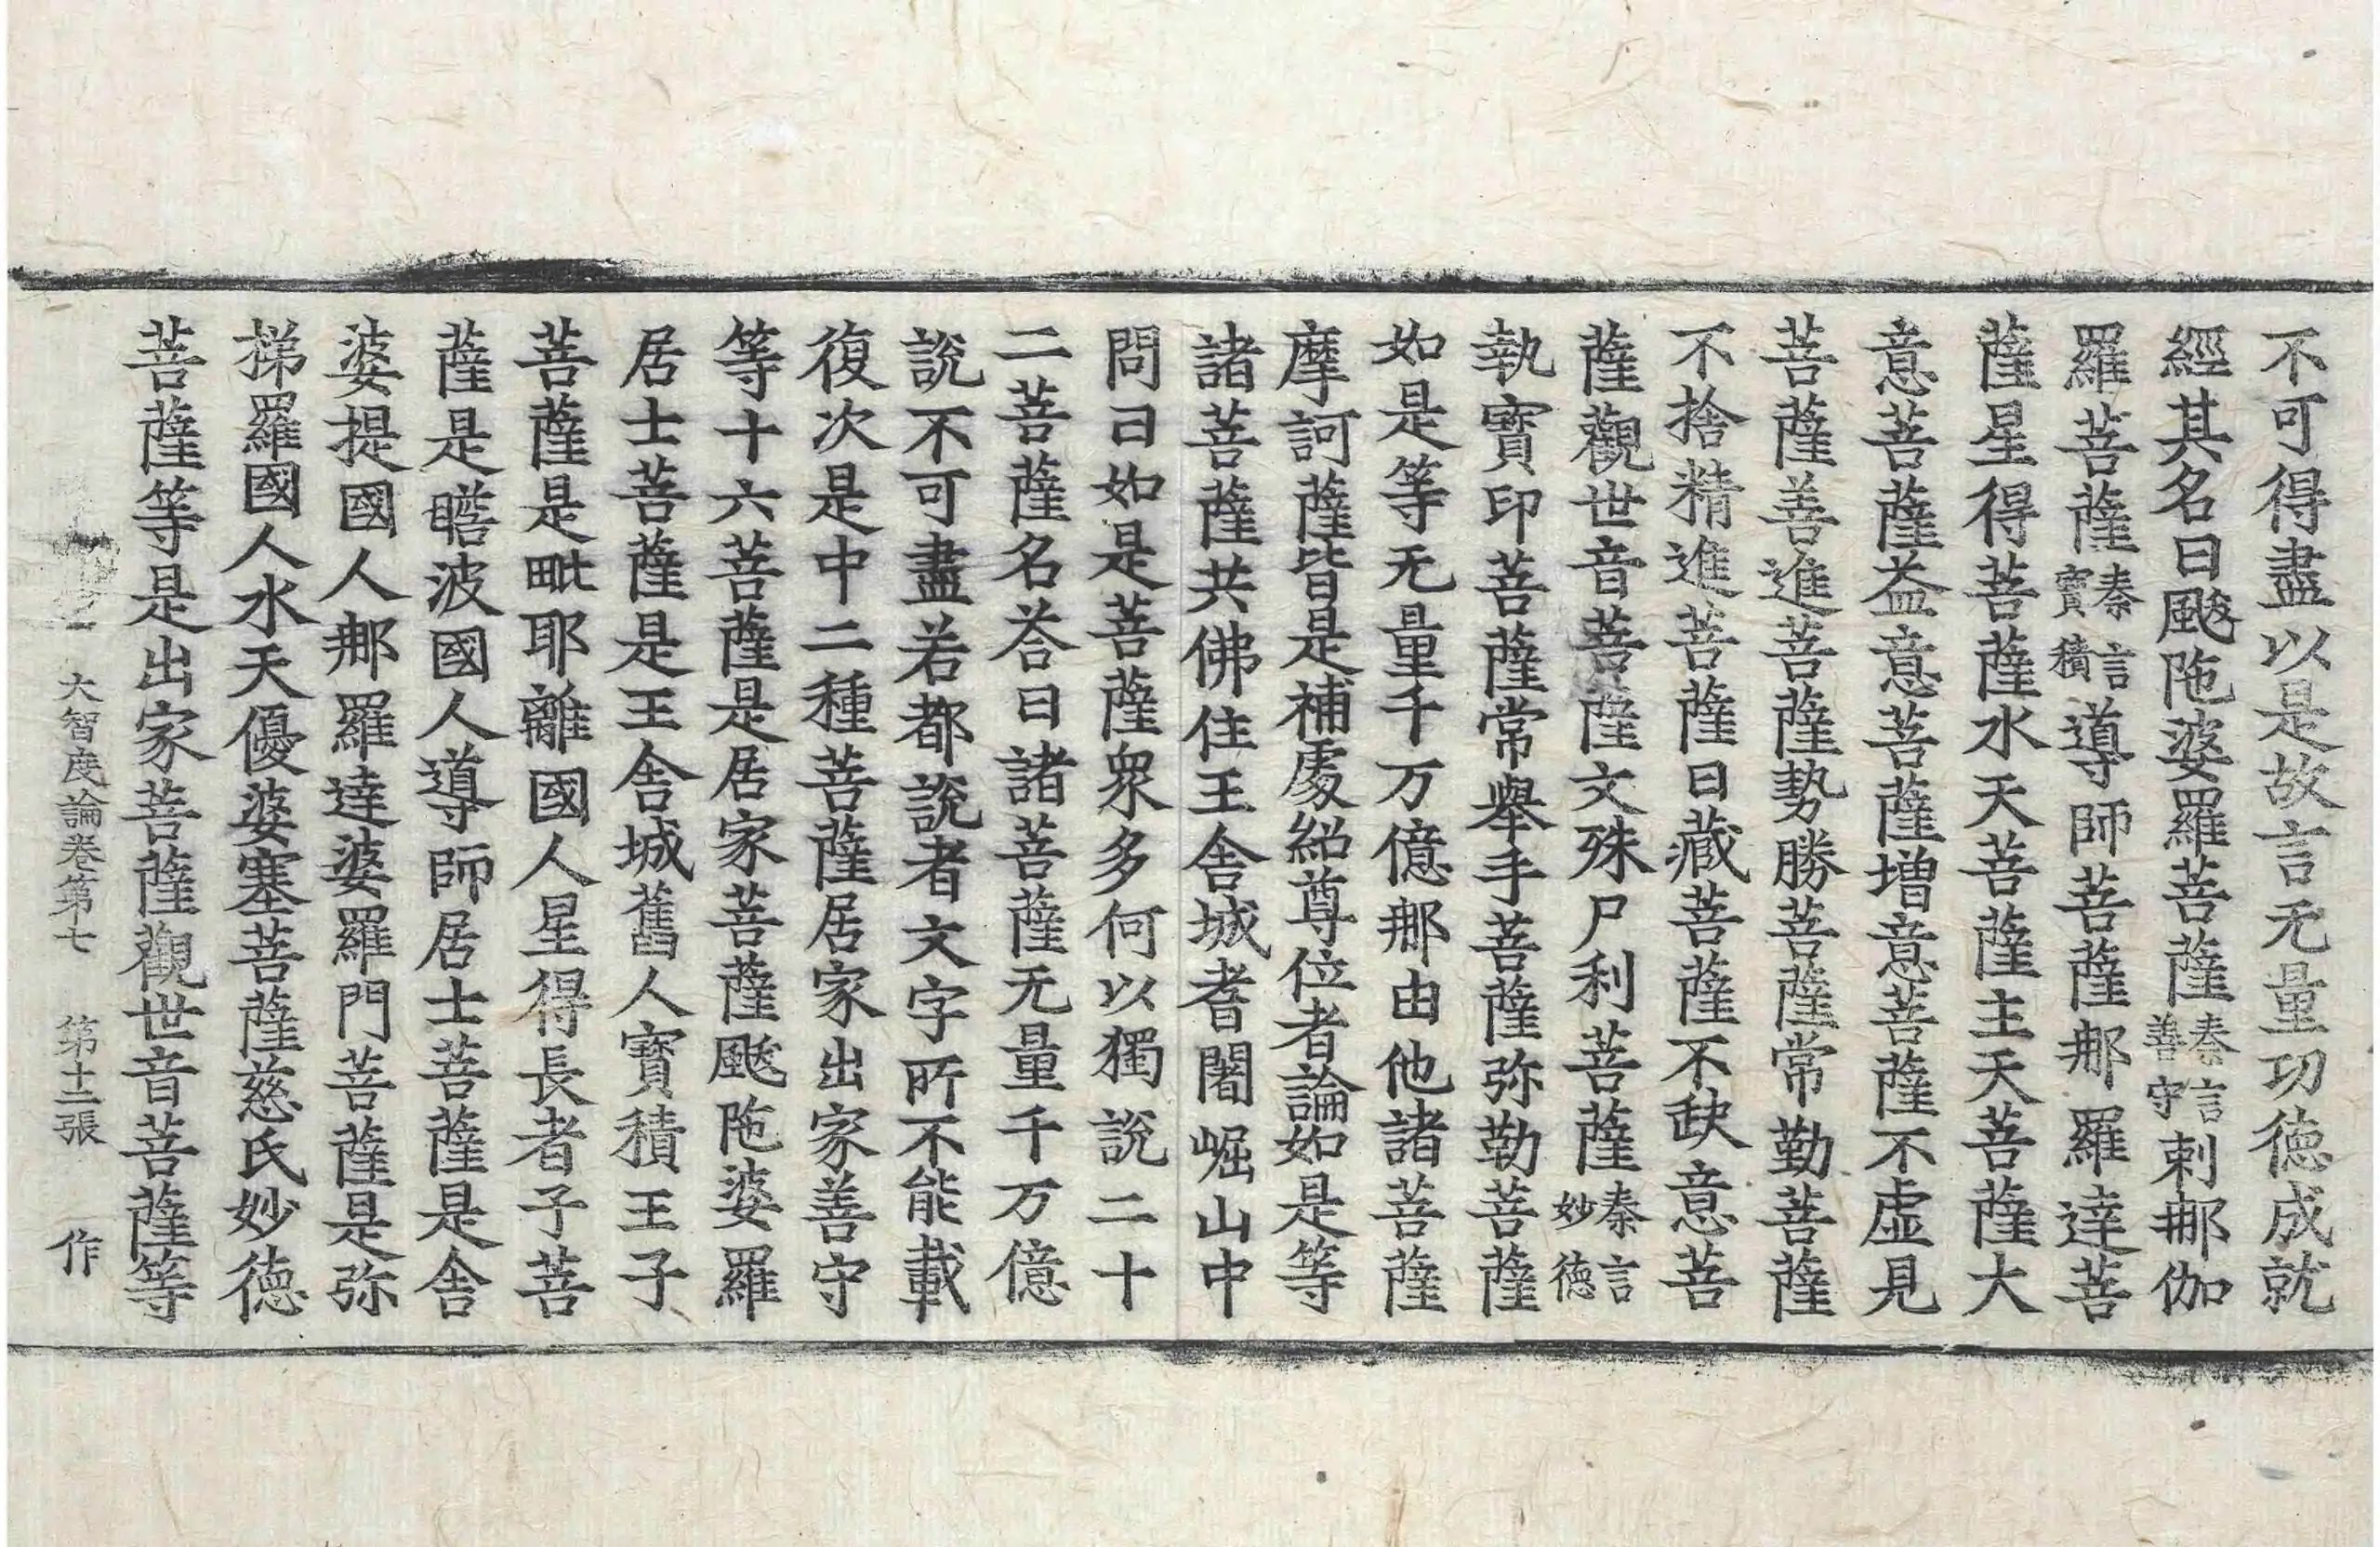 不可得盡以是故言无量功德成就
經其名曰颰陁婆羅菩薩秦言善守剌那伽
羅菩薩秦言寶積導師菩薩那羅達菩
薩星得菩薩水天菩薩主天菩薩大
意菩薩益意菩薩增意菩薩不虛見
菩薩善進菩薩勢勝菩薩常勤菩薩
不捨精進菩薩日藏菩薩不缺意菩
薩觀世音菩薩文殊尸利菩薩秦言妙德
執寶印菩薩常舉手菩薩弥勒菩薩
如是等无量千万億那由他諸菩薩
摩訶薩皆是補處紹尊位者論如是等
諸菩薩共佛住王舍城耆闍崛山中
問曰如是菩薩眾多何以獨說二十
二菩薩名荅曰諸菩薩无量千万億
說不可盡若都說者文字所不能載
復次是中二種菩薩居家出家善守
等十六菩薩是居家菩薩颰陁婆羅
居士菩薩是王舍城舊人寶積王子
菩薩是毗耶離國人星得長者子菩
薩是瞻波國人導師居士菩薩是舍
婆提國人那羅達婆羅門菩薩是弥
梯羅國人水天優婆塞菩薩慈氏妙德
菩薩等是出家菩薩觀世音菩薩等
大智度論卷第七 第十二張 作